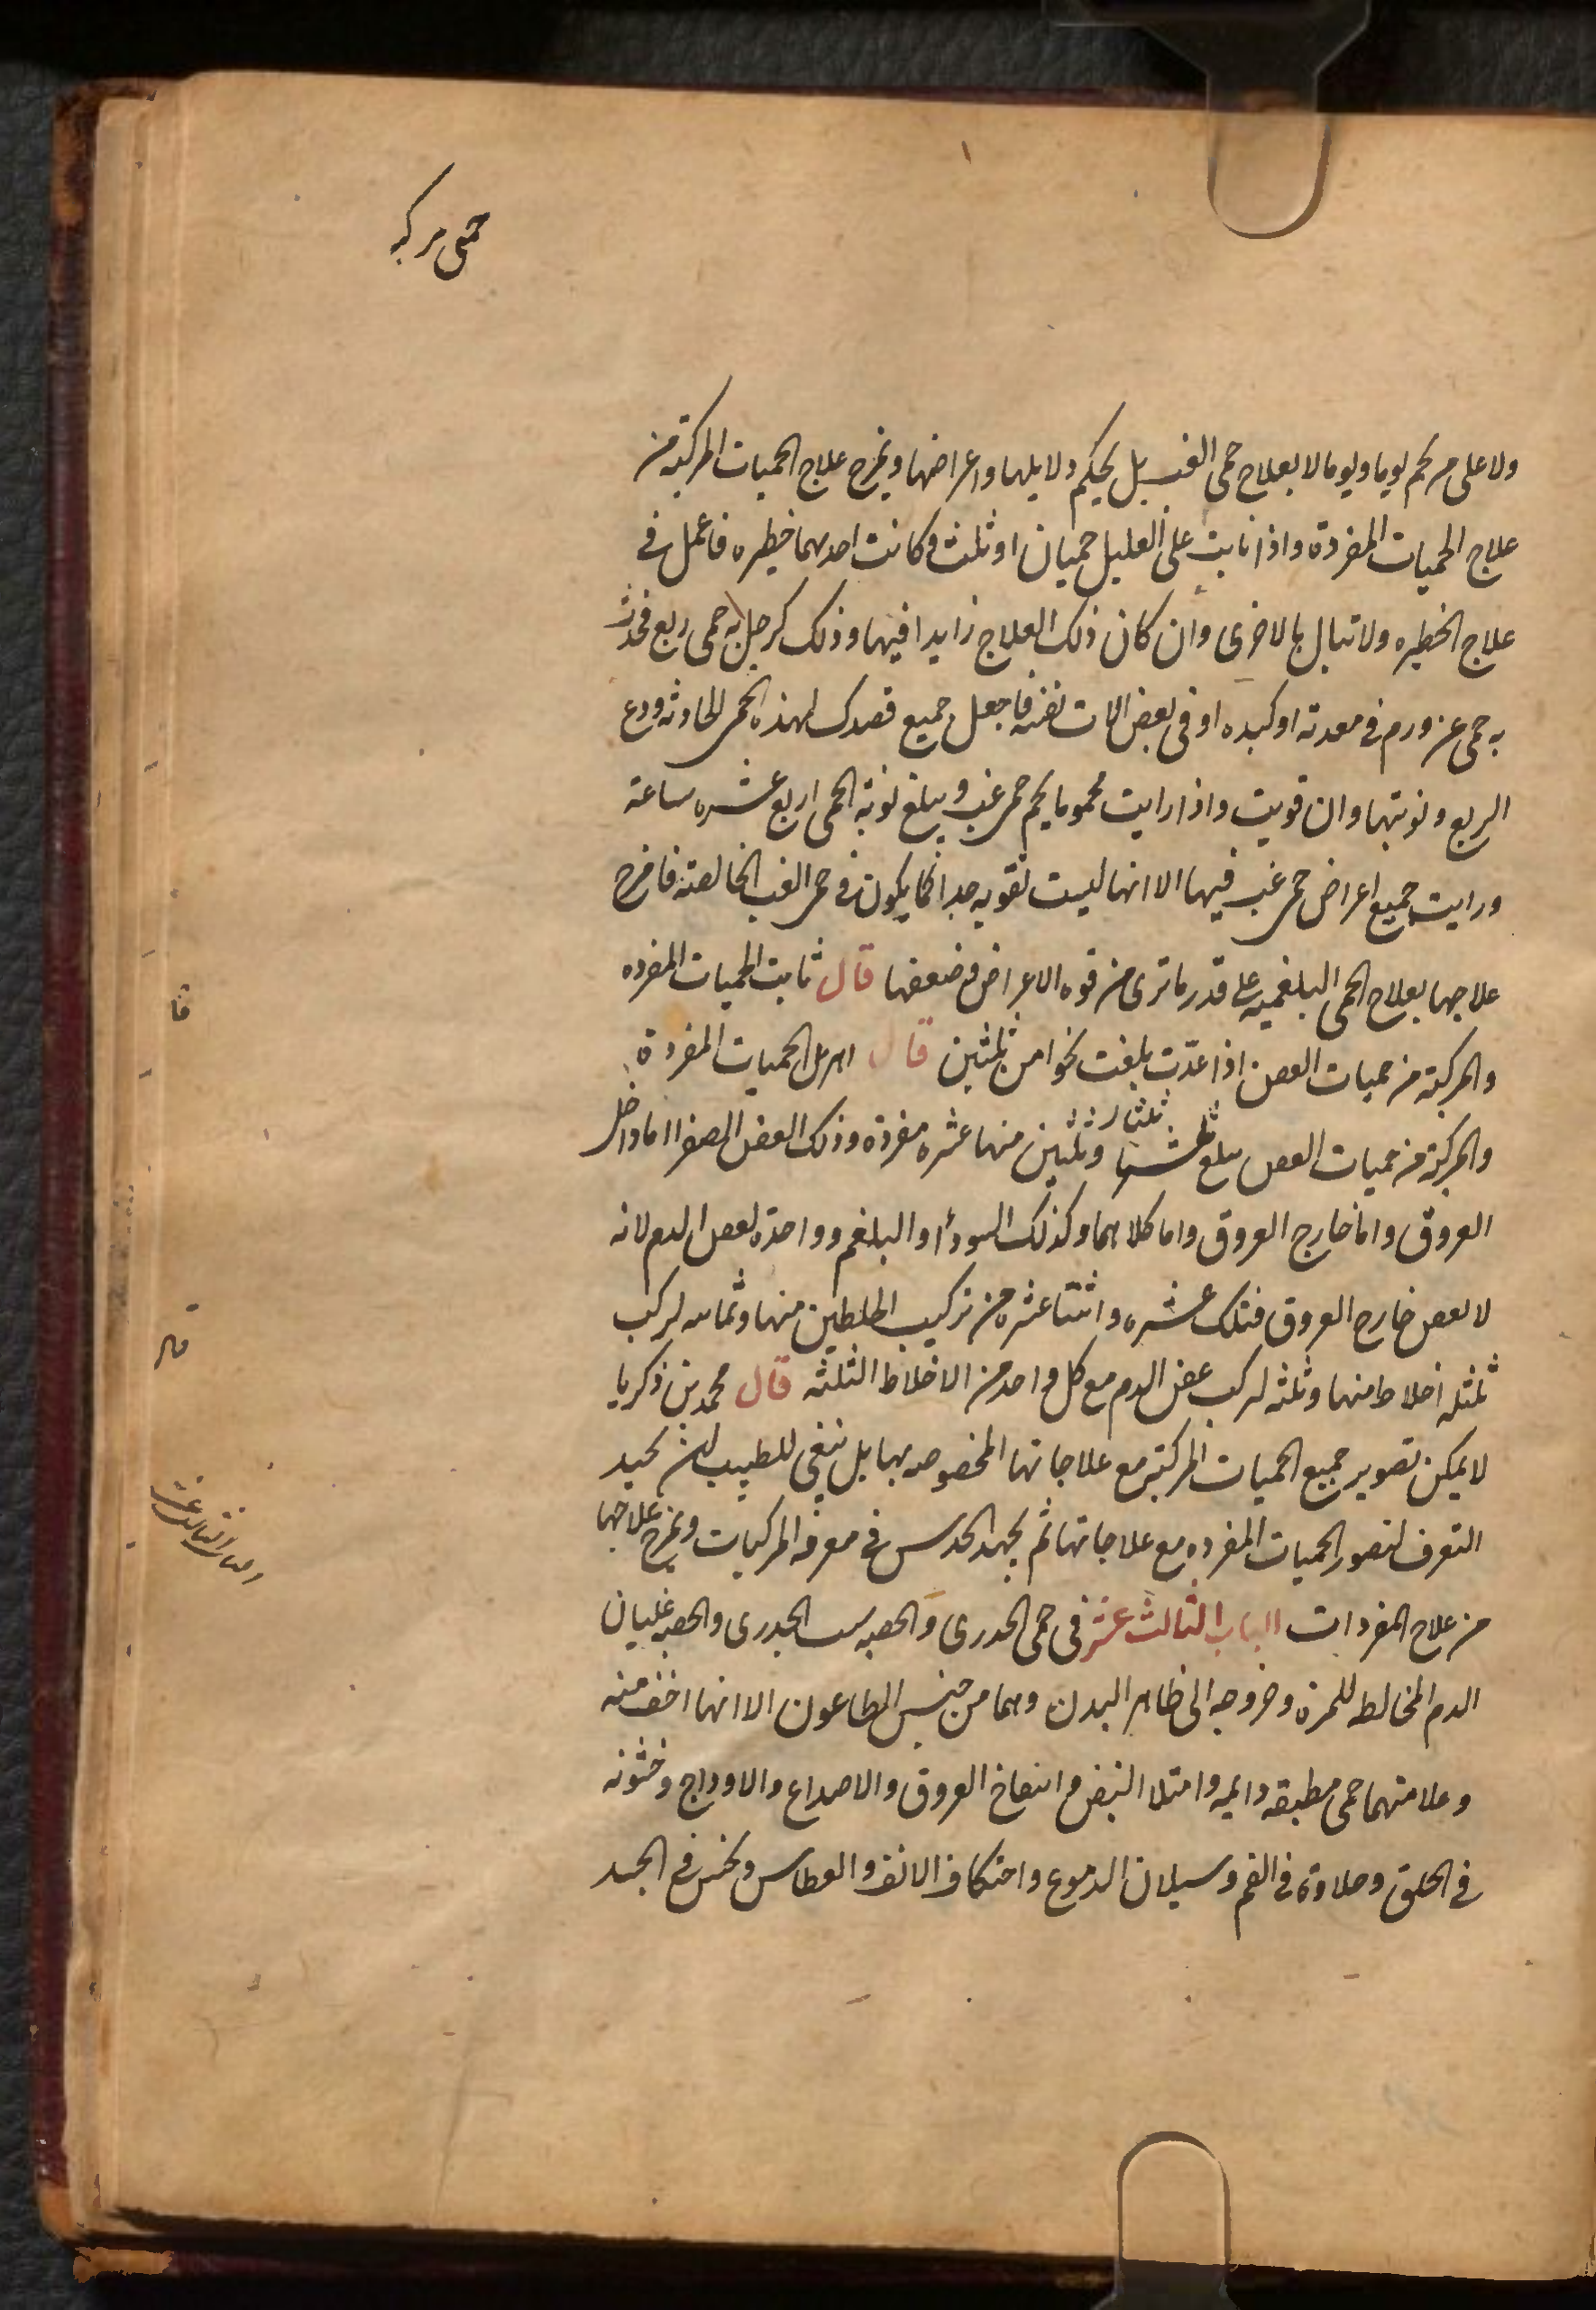 حمى مركبه
ولا على من يحم يوما ويوما لا بعلاج حمى الغب بل يحكم دلايلها واعراضها ويمزج علاج الحميات المركبة من
علاج الحميات المفردة واذا نابت على العليل حميان او ثلث وكانت احديهما خطيره فاعمل في
علاج الخطيره ولا تبال بالاخرى وان كان ذلك العلاج زايدا فيها وذلك كرجل به حمى ربع فحدث
به حمى عن ورم في معدته او كبده او في بعض الات نفسه فاجعل جميع قصدك لهذه الحمى الحادثه ودع
الربع ونوبتها وان قويت واذا رايت محموما يحم حمى غب ويبلغ نوبة الحمى اربع عشره ساعة
ورايت جميع اعراض حمى غب فيها الا انها ليست بقويه جدا كما يكون في حمى الغب الخالصة فامزج
علاجها بعلاج الحمى البلغميه على قدر ما ترى من قوه الاعراض وضعفها قال ثابت الحميات المفرده
والمركبة من حميات العفن اذا عدّت بلغت نحوا من ثلثين قال الحميات المفردة
والمركبة من حميات العفن يبلغ ثلثا وثلثين منها عشره مفردة وذلك العفن الصفرا اما داخل
العروق واما خارج العروق واما كلاهما وكذلك السودأ والبلغم وواحدة لعفن الدم لانه
لا يعفن خارج العروق فتلك عشره واثنتا عشره من تركيب الخلطين منها وثمانيه لتركيب
ثلثه اخلاط منها وثلثه لتركيب عفن الدم مع كل واحد من الاخلاط الثلثه قال محمد بن زكريا
لا يمكن تصوير جميع الحميات المركبة مع علاجاتها المخصوصه بها بل ينبغي للطبيب ان يجيد
التعرف لتصور الحميات المفرده مع علاجاتها ثم يجيد الحدس في معرفه المركبات ويمزج علاجها
من علاج المفردات الباب الثالث عشر في حمى الجدري والحصبه الجدرى والحصبه غليان
الدم المخالطه للمرة وخروجه الى ظاهر البدن وهما من جنس الطاعون الا انهما اخف منه
وعلامتهما حمى مطبقه دايمه وامتلا النبض وانتفاخ العروق والاصداغ والاوداج وخشونه
في الحلق وحلاوة في الفم وسيلان الدموع واحتكاك الانف والعطاس ونخس في الجسد
قا
قال
الباب الثالث عشر